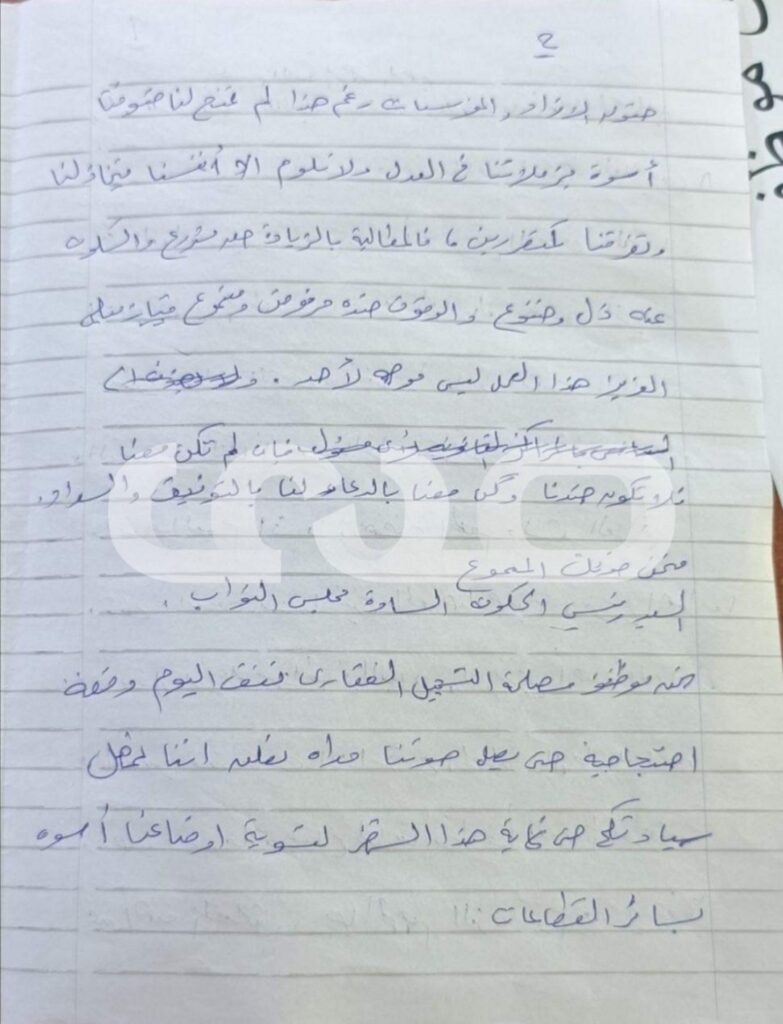 ح
حقوق الافراد والمؤسسات رغم هذا لم تمنح لنا حقوقنا
أسوة بزملائنا في العدل ولا نلوم الا أنفسنا فتخاذلنا
وتفرقنا
فالمطالبة بالزيادة حق مشروع والسكوت
عنه ذل وخنوع والوقوف ضده مرفوض وممنوع
العزيز هذا العمل ليس موجه لأحد .
فإن لم تكن معنا
فلا تكون ضدنا وكن معنا بالدعاء لنا بالتوفيق والسداد.
فنحن صوتك المسموع
السيد رئيس الحكومة السادة مجلس النواب .
نحن موظفو مصلحة التسجيل العقاري نقف اليوم وقفة
احتجاجية حتى يصل صوتنا مداه نعلن اننا نمهل
سيادتكم حتى نهاية هذا الشهر لتسوية اوضاعنا أسوه
بسائر القطاعات